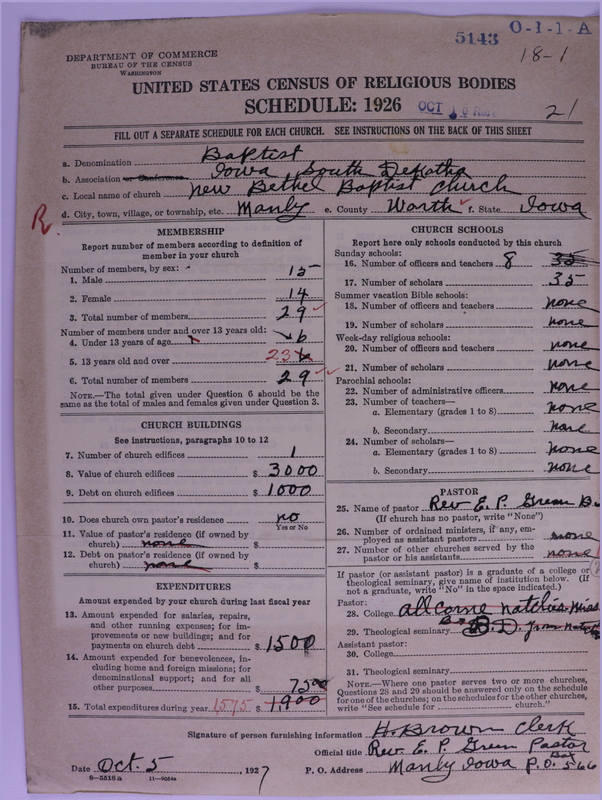 5143
O-1-1-A
18-1
DEPARTMENT OF COMMERCE
BUREAU OF THE CENSUS
WASHINGTON
UNITED STATES CENSUS OF RELIGIOUS BODIES
SCHEDULE: 1926
OCT 10
21
FILL OUT A SEPARATE SCHEDULE FOR EACH CHURCH. SEE INSTRUCTIONS ON THE BACK OF THIS SHEET
a. Denomination Baptist
b. Association or Conference Iowa South Dekotha
c. Local name of church new Bethel Baptist church
R
d. City, town, village, or township, etc. Manly e. County Warth f. State Iowa
MEMBERSHIP
Report number of members according to definition of
member in your church
Number of members, by sex:
1. Male 15
2. Female 14
3. Total number of members 29
Number of members under and over 13 years old:
4. Under 13 years of age 6
5. 13 years old and over 23
6. Total number of members 29
NOTE.—The total given under Question 6 should be the
same as the total of males and females given under Question 3.
CHURCH BUILDINGS
See instructions, paragraphs 10 to 12
7. Number of church edifices 1
8. Value of church edifices $ 3000
9. Debt on church edifices $ 1000
10. Does church own pastor's residence? no
Yes or No
11. Value of pastor's residence (if owned by
church) none $
12. Debt on pastor's residence (if owned by
church) none $
EXPENDITURES
Amount expended by your church during last fiscal year
13. Amount expended for salaries, repairs,
and other running expenses; for im-
provements or new buildings; and for
payments on church debt $ 1500
14. Amount expended for benevolences, in-
cluding home and foreign missions; for
denominational support; and for all
other purposes $ 75 00
15. Total expenditures during year 1575 $ 1900
CHURCH SCHOOLS
Report here only schools conducted by this church
Sunday schools:
16. Number of officers and teachers 8 35
17. Number of scholars 35
Summer vacation Bible schools:
18. Number of officers and teachers none
19. Number of scholars none
Week-day religious schools:
20. Number of officers and teachers none
21. Number of scholars none
Parochial schools:
22. Number of administrative officers none
23. Number of teachers—
a. Elementary (grades 1 to 8) none
b. Secondary none
24. Number of scholars—
a. Elementary (grades 1 to 8) none
b. Secondary none
PASTOR
25. Name of pastor Rev. E. P. Green
(If church has no pastor, write "None")
26. Number of ordained ministers, if any, em-
ployed as assistant pastors none
27. Number of other churches served by the
pastor or his assistants none
If pastor (or assistant pastor) is a graduate of a college or
theological seminary, give name of institution below. (If
not a graduate, write "No" in the space indicated.)
Pastor:
28. College allcorne natchies, Miss
29. Theological seminary B. D. from
Assistant pastor:
30. College
31. Theological seminary
NOTE.—Where one pastor serves two or more churches,
Questions 28 and 29 should be answered only on the schedule
for one of the churches; on the schedules for the other churches,
write "See schedule for church."
Signature of person furnishing information H. Brown clerk
Official title Rev. E. P. Green Pastor
Date Oct. 5, 1927 P. O. Address Manly Iowa P.O. Box 566
8—5518 a 11—9034a